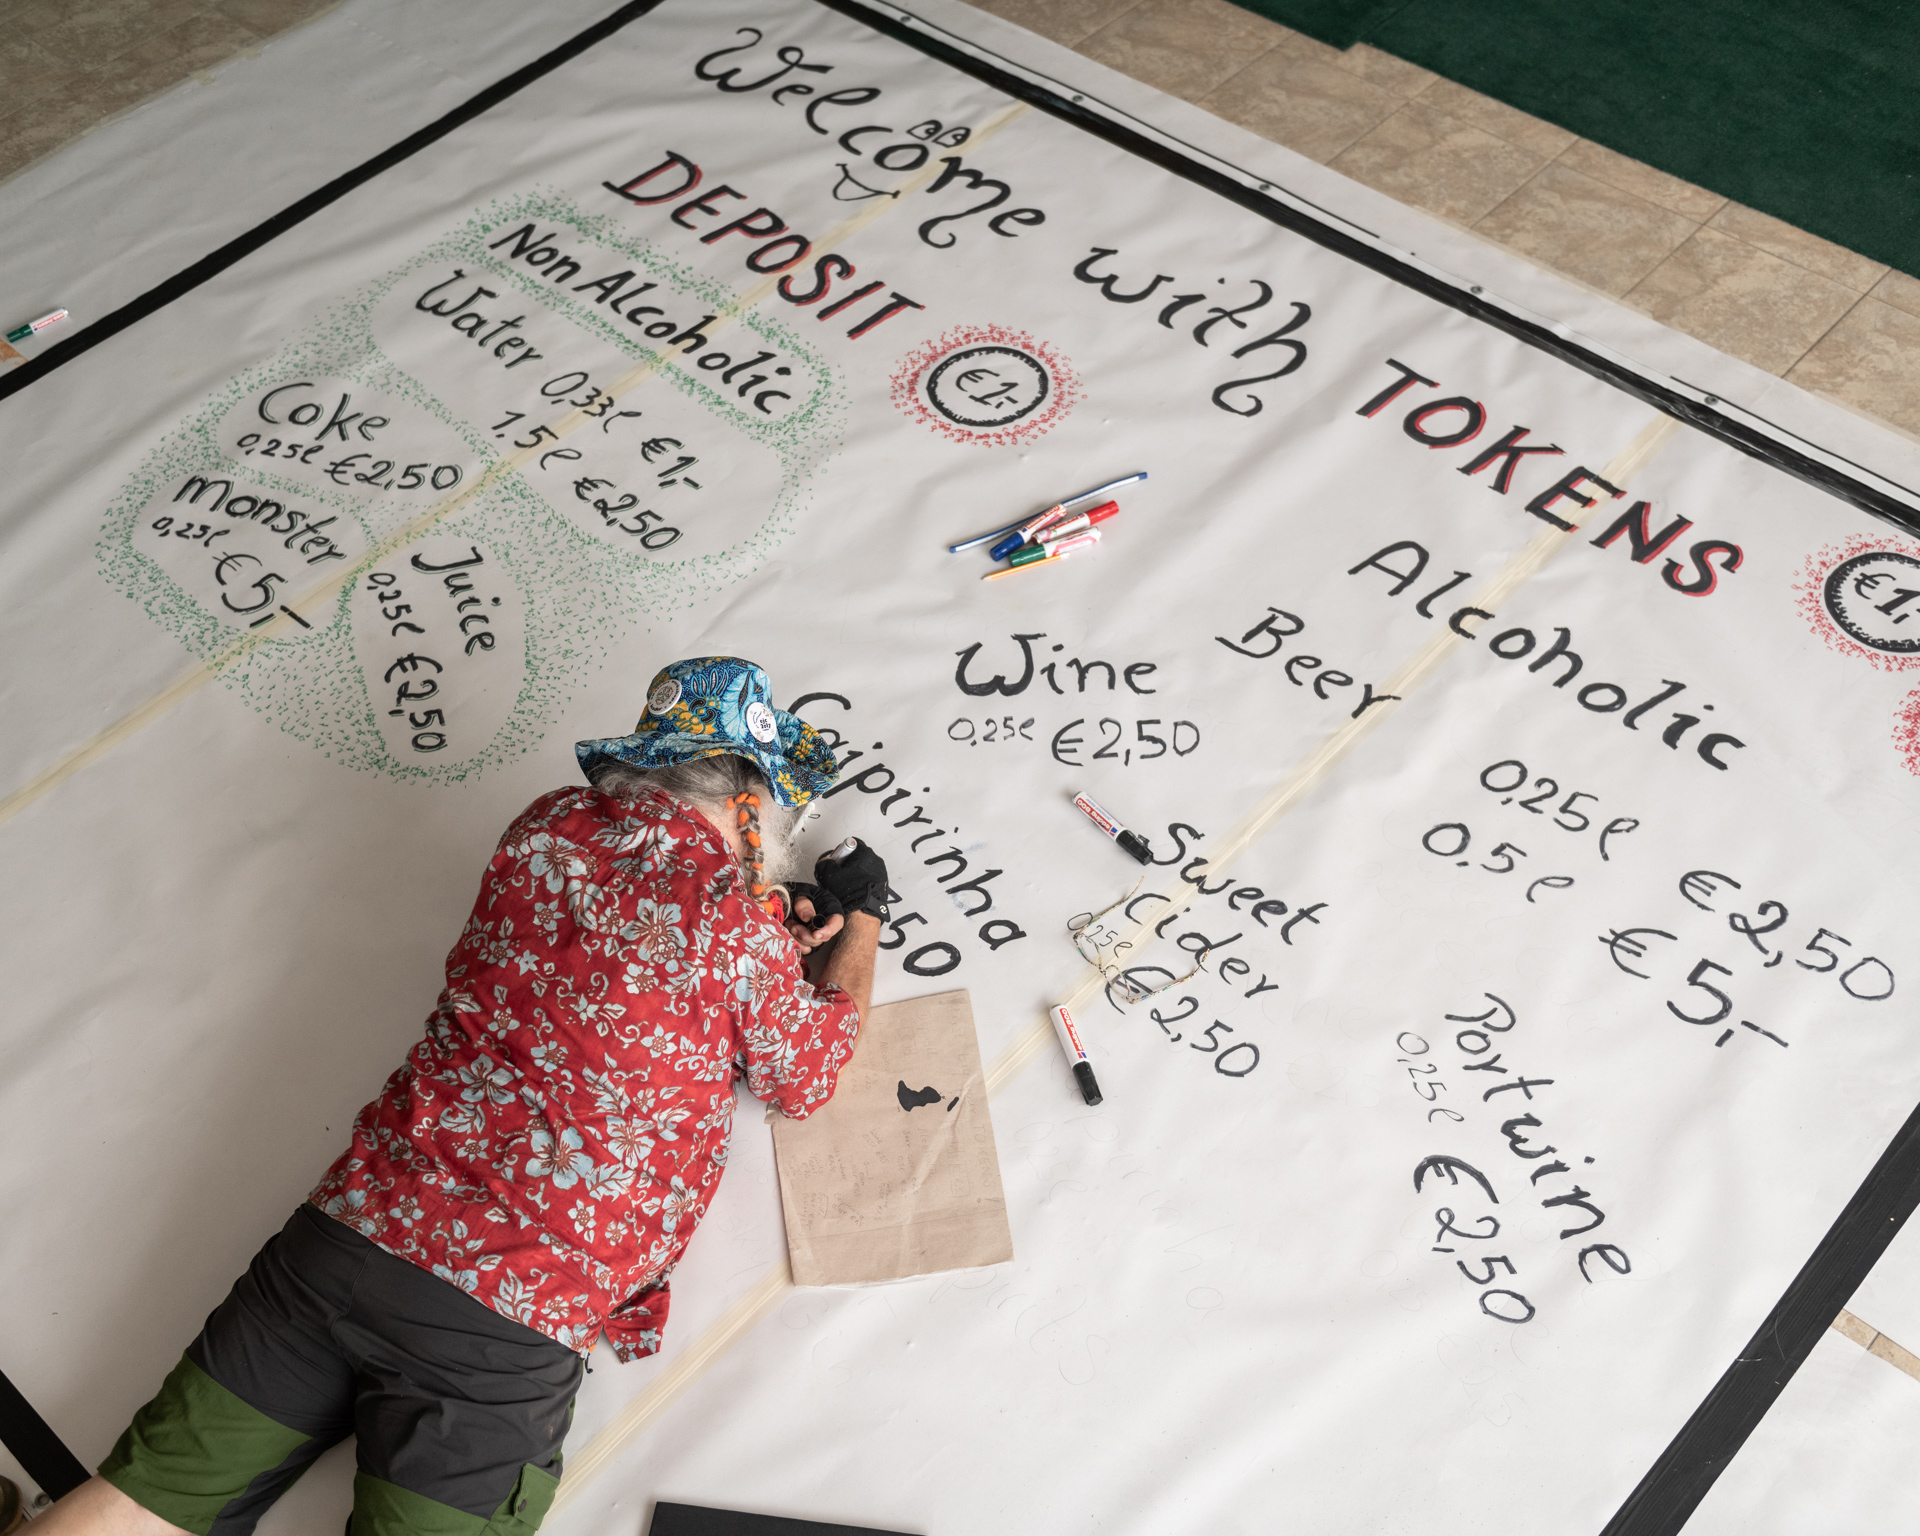 Welcome with TOKENS
DEPOSIT
€1,-
€1,-
Non Alcoholic
Water 0,33l €1,-
1.5l €2,50
Coke
0,25l €2,50
monster
0,25l €5,-
Juice
0,25l €2,50
Alcoholic
Beer
0,25l €2,50
0.5l €5,-
Wine
0,25l €2,50
Caipirinha
50
Sweet
Cider
0,25l
€2,50
Portwine
0,25l €2,50